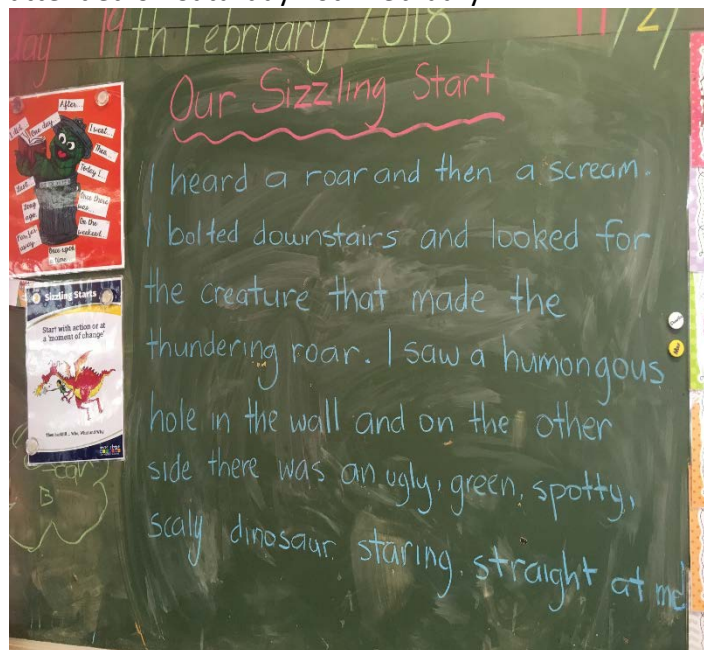 19th February 2018
Our Sizzling Start
I heard a roar and then a scream.
I bolted downstairs and looked for
the creature that made the
thundering roar. I saw a humongous
hole in the wall and on the other
side there was an ugly, green, spotty,
scaly dinosaur staring straight at me!
After...
One day
I went...
Then...
Today I...
Last...
Once there was
Long ago,
On the weekend
Far, far away
Once upon a time
Sizzling Starts
Start with action or at
a 'moment of change'
B